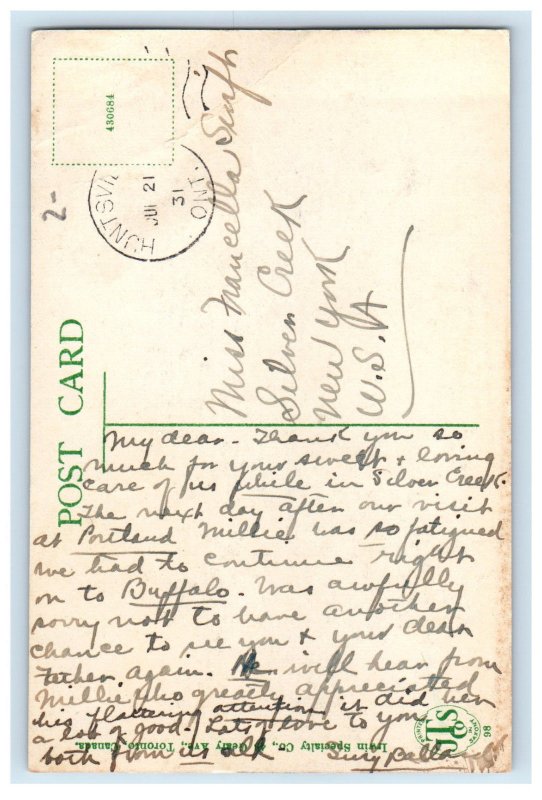 POST CARD
430684
HUNTSVI
JUL 21
31
ONT.
2-
Miss Francella
Silver Creek
New York
U.S.A
My dear - Thank you so
much for your sweet + loving
care of us while in Silver Creek.
The next day after our visit
at Portland Millie was so fatigued
we had to continue right
on to Buffalo. Was awfully
sorry not to have another
chance to see you + your dear
Father again. He will hear from
Millie who greatly appreciated
his flattering attention it did her
a lot of good. Lots of love to you
both from us
Irwin Specialty Co., Ave., Toronto, Canada.
98